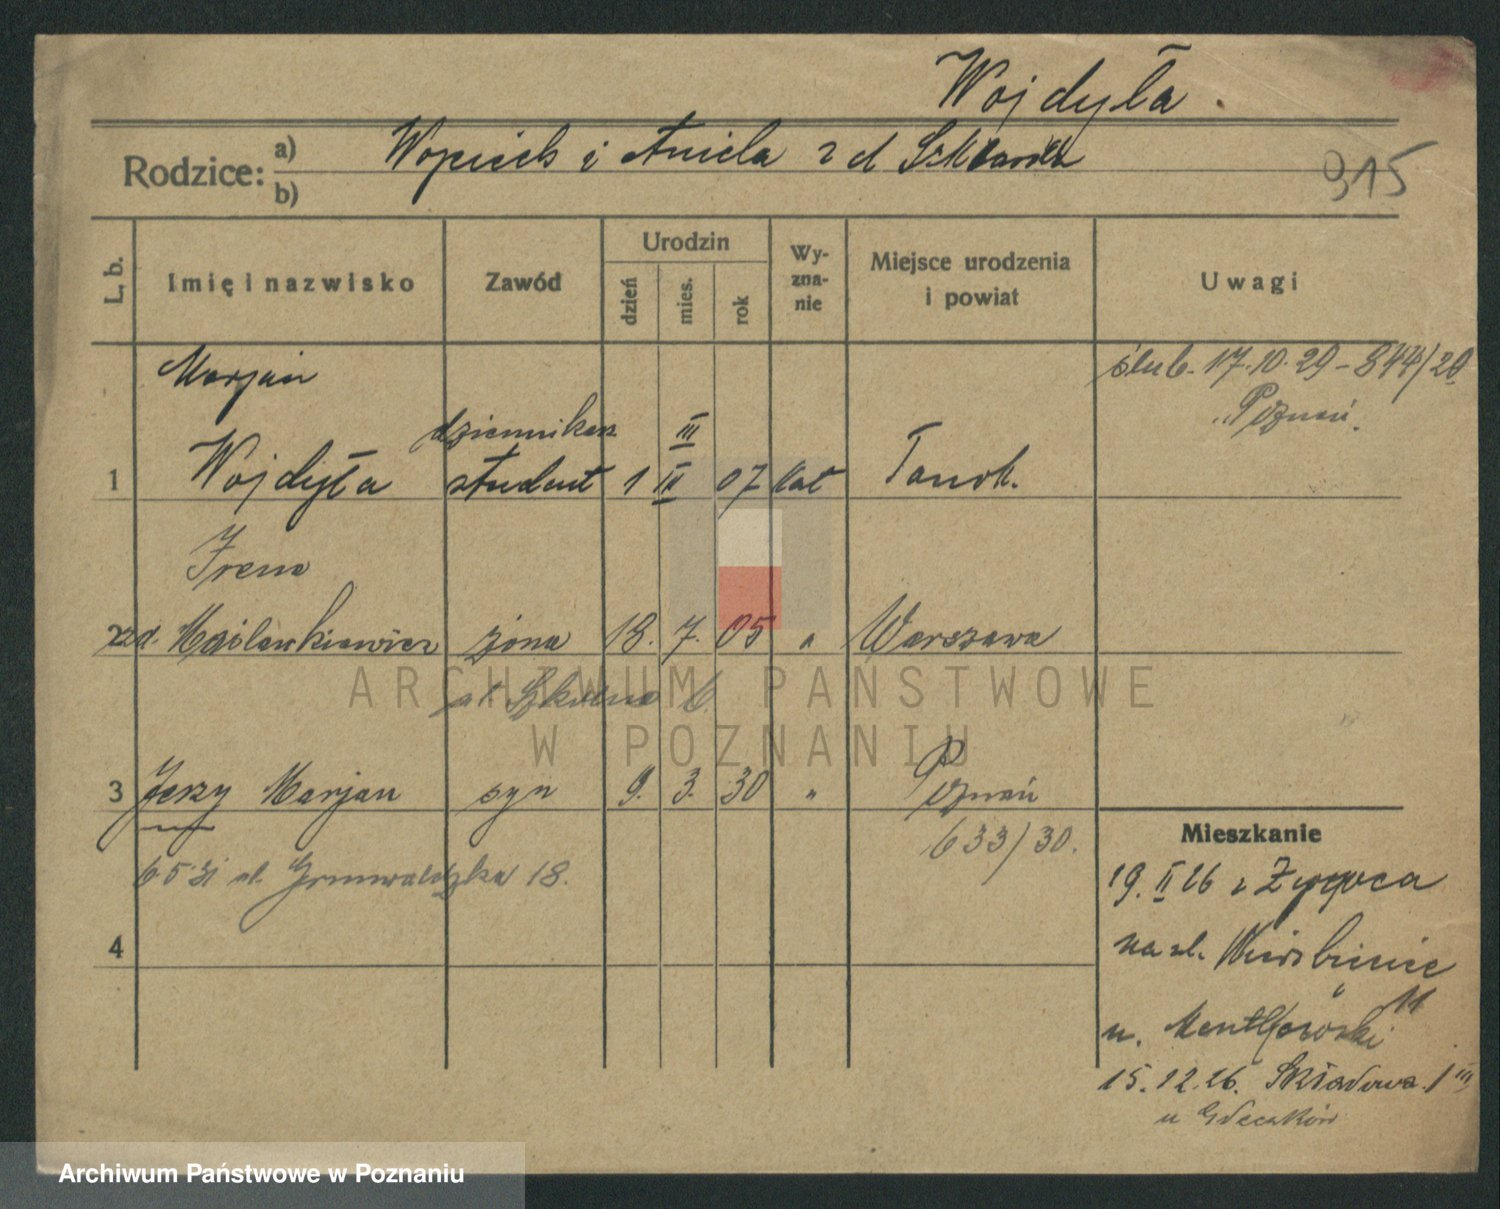 Wojdyła.
Rodzice: a) Wojciech i Aniela z d Szklarska
b)
915
L. b.
Imię i nazwisko
Zawód
Urodzin
dzień
mies.
rok
Wy-
zna-
nie
Miejsce urodzenia
i powiat
Uwagi
Marjan
ślub. 17.10.29 - 844/29
Poznań.
dziennikarz III
1 Wojdyła student 1 II 07 kat Sanok.
Irena
2 zd. Maślankiewicz żona 18. 7. 05 " Warszawa
ul. Szkolna 6
3 Jerzy Marjan syn 9. 3. 30 " Poznań
633/30.
6 5 31 ul. Grunwaldzka 18.
4
Mieszkanie
19. II 26 z Żywca
na ul. Wierzbięcice
11
u.
15.12.26. Składowa 1 III
u Gdeczków
ARCHIWUM PAŃSTWOWE
W POZNANIU
Archiwum Państwowe w Poznaniu